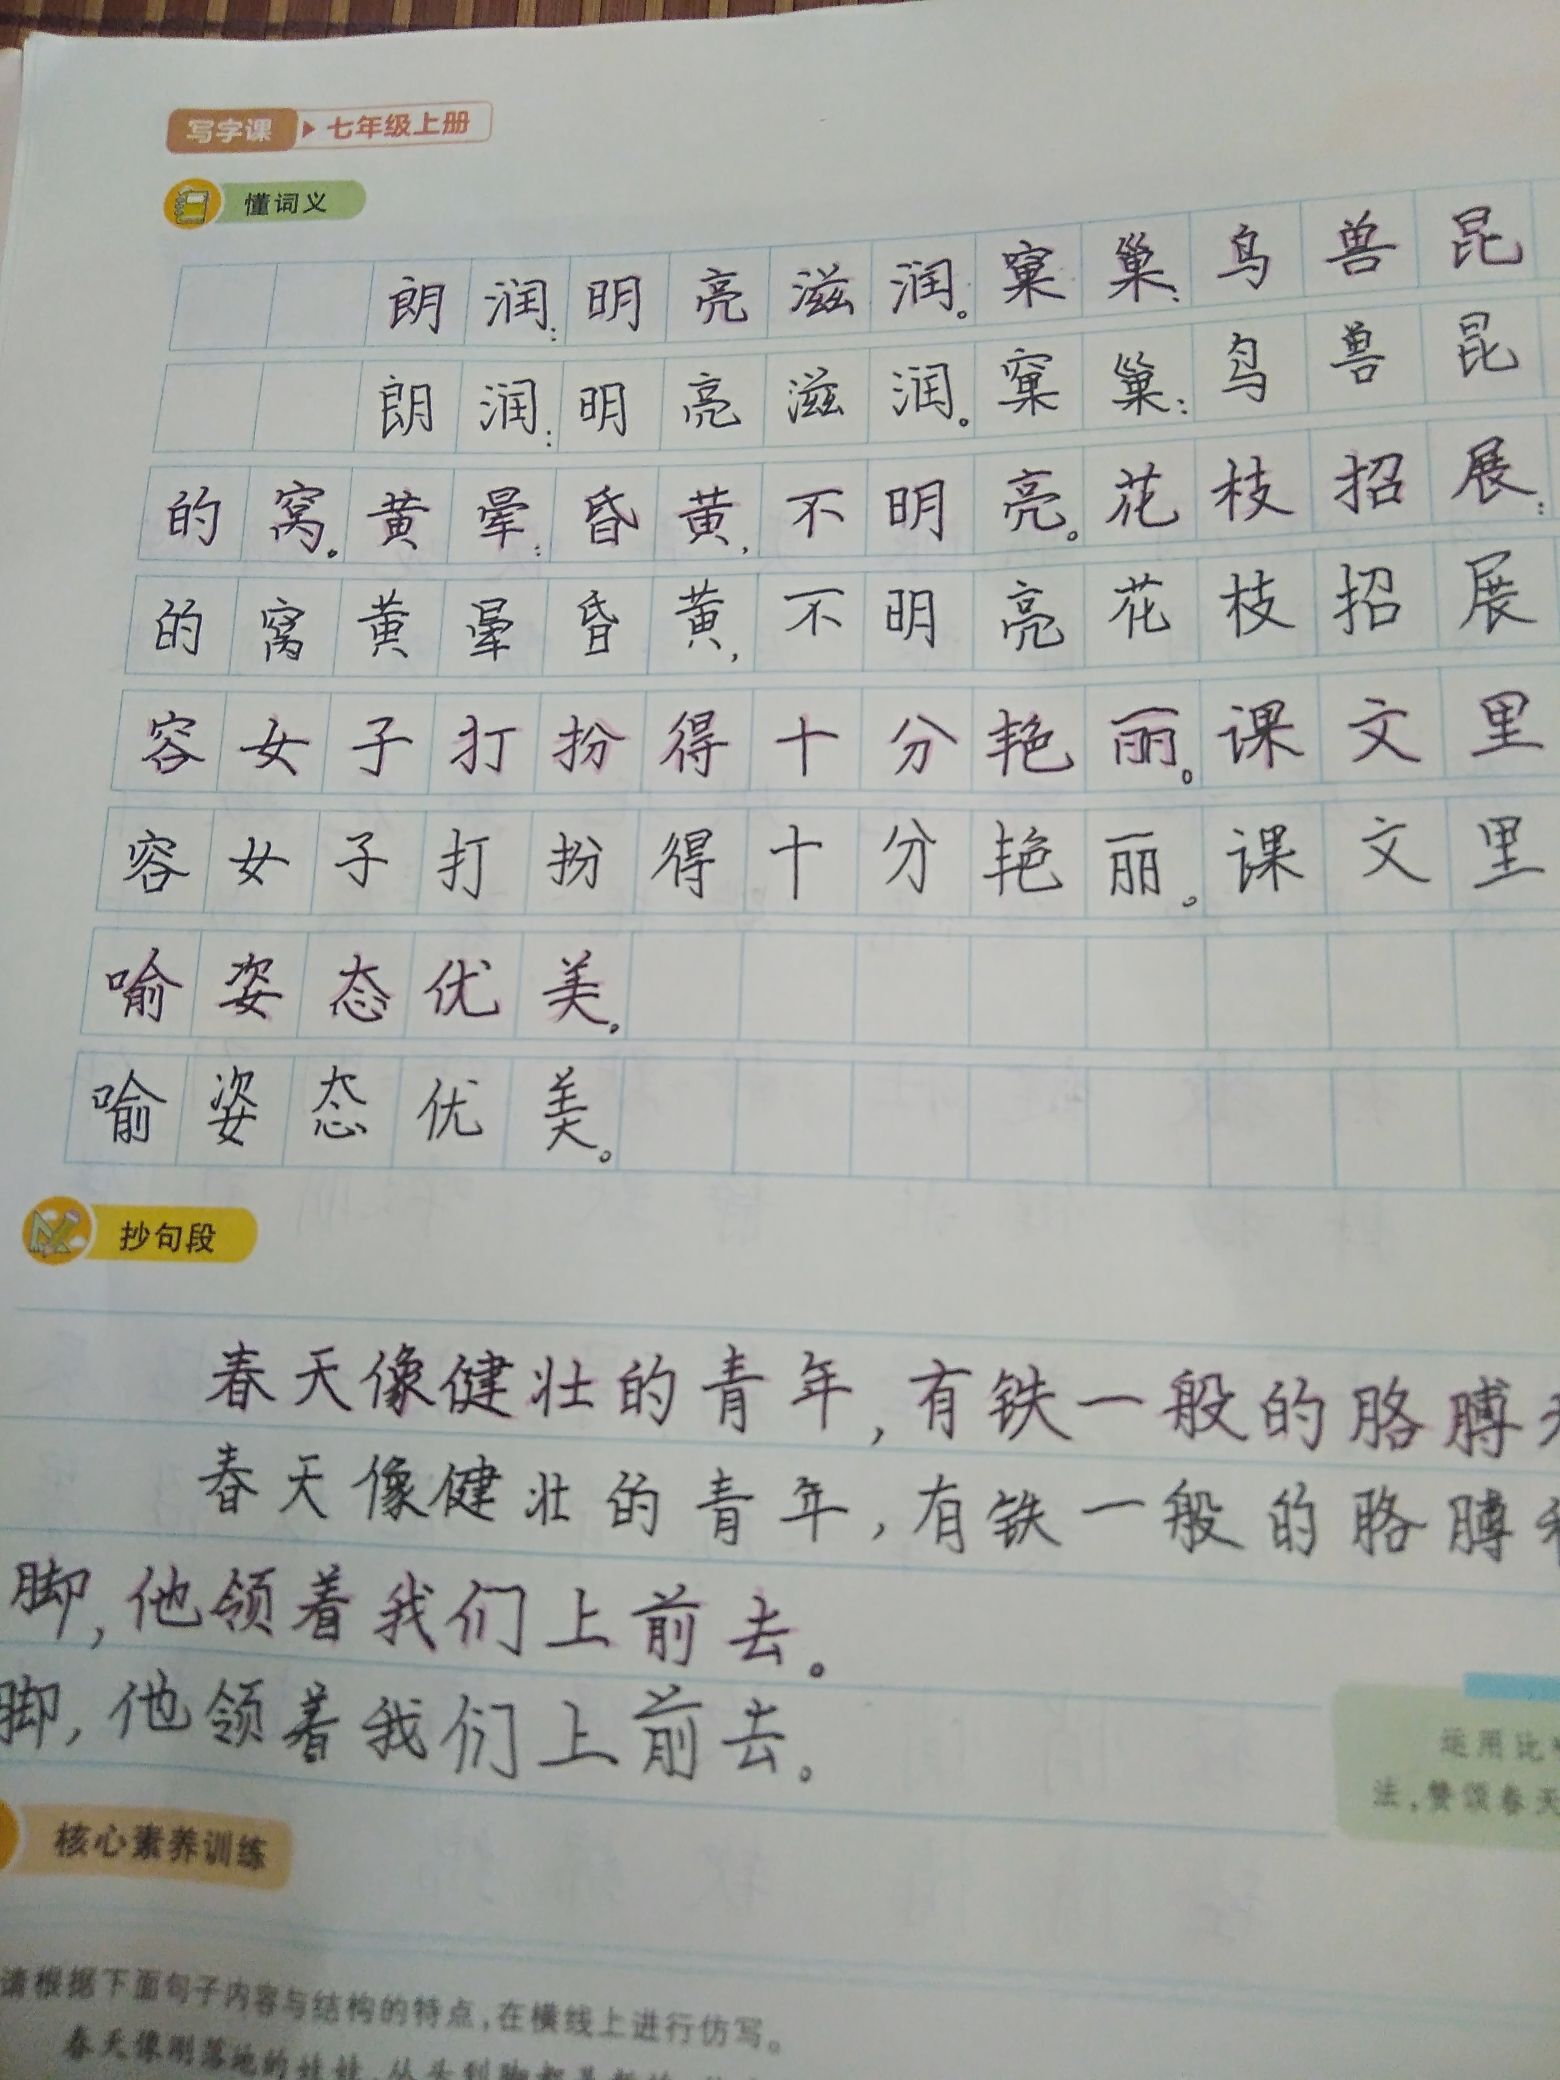 写字课 七年级上册
懂词义
朗润:明亮滋润。窠巢:鸟兽昆
朗润:明亮滋润。窠巢:鸟兽昆
的窝。黄晕:昏黄,不明亮。花枝招展:
的窝黄晕昏黄,不明亮花枝招展
容女子打扮得十分艳丽。课文里
容女子打扮得十分艳丽。课文里
喻姿态优美。
喻姿态优美。
抄句段
春天像健壮的青年,有铁一般的胳膊
春天像健壮的青年,有铁一般的胳膊
脚,他领着我们上前去。
脚,他领着我们上前去。
运用比
法,赞颂春天
核心素养训练
请根据下面句子内容与结构的特点,在横线上进行仿写。
春天像刚落地的娃娃,从头到脚都是